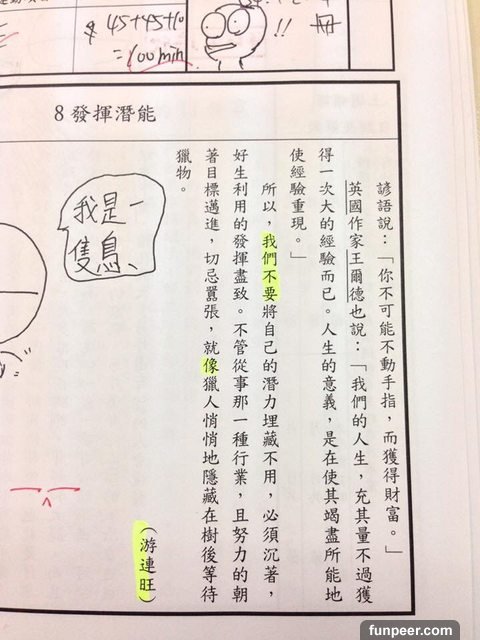 $ 45+45+10
=100min
!!
冊
8發揮潛能
諺語說：「你不可能不動手指，而獲得財富。」
英國作家王爾德也說：「我們的人生，充其量不過獲
得一次大的經驗而已。人生的意義，是在使其竭盡所能地
使經驗重現。」
所以，我們不要將自己的潛力埋藏不用，必須沉著，
好生利用的發揮盡致。不管從事那一種行業，且努力的朝
著目標邁進，切忌囂張，就像獵人悄悄地隱藏在樹後等待
獵物。
（游連旺）
我是一
隻鳥、
funpeer.com